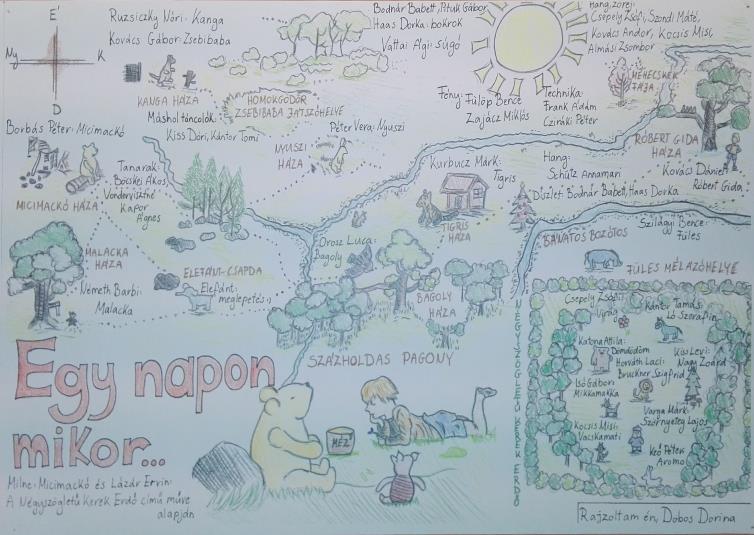 É
Ny K
D
Ruzsiczky Nóri: Kanga
Kovács Gábor: Zsebibaba
Bodnár Babett, Pituk Gábor
Haas Dorka: bokrok
Váttai Ági: súgó
Hang, zörej:
Csépely Zsófi, Szondi Máté,
Kovács Andor, Kocsis Misi,
Almási Zsombor
KANGA HÁZA
HOMOKGÖDÖR
ZSEBIBABA JÁTSZÓHELYE
Máshol táncolók:
Kiss Dóri, Kántor Tomi
Fény: Fülöp Bence
Zajácz Miklós
Technika:
Frank Ádám
Cziráki Péter
MÉHECSKÉK
FÁJA
Borbás Péter: Micimackó
MICIMACKÓ HÁZA
Tanárok:
Böcskei Ákos,
Vondervisztné
Kapor
Ágnes
Péter Vera: Nyuszi
NYUSZI
HÁZA
Kurbucz Márk:
Tigris
TIGRIS
HÁZA
Hang:
Schütz Annamari
Díszlet: Bodnár Babett, Haas Dorka
RÓBERT GIDA
HÁZA
Kovács Dániel:
Róbert Gida
MALACKA
HÁZA
Németh Barbi:
Malacka
ELEFÁNT-CSAPDA
Elefánt:
meglepetés :)
Orosz Luca:
Bagoly
BAGOLY
HÁZA
BÁNATOS BOZÓTOS
Szilágyi Bence:
Füles
FÜLES MÉLÁZÓHELYE
SZÁZHOLDAS PAGONY
NÉGYSZÖGLETŰ KEREK ERDŐ
Csépely Zsófi:
Virág
Kántor Tamás:
Ló Szerafin
Katona Attila:
Dömdödöm
Horváth Laci:
Bruckner Szigfrid
Kiss Levi:
Nagy Zoárd
Bső Gábor:
Mikkamakka
Varga Márk:
Szörnyeteg Lajos
Kocsis Misi:
Vacskamati
Kéő Péter:
Aromo
Egy napon
mikor...
MÉZ
Milne: Micimackó és Lázár Ervin:
A Négyszögletű Kerek Erdő című műve
alapján
Rajzoltam én, Dobos Dorina